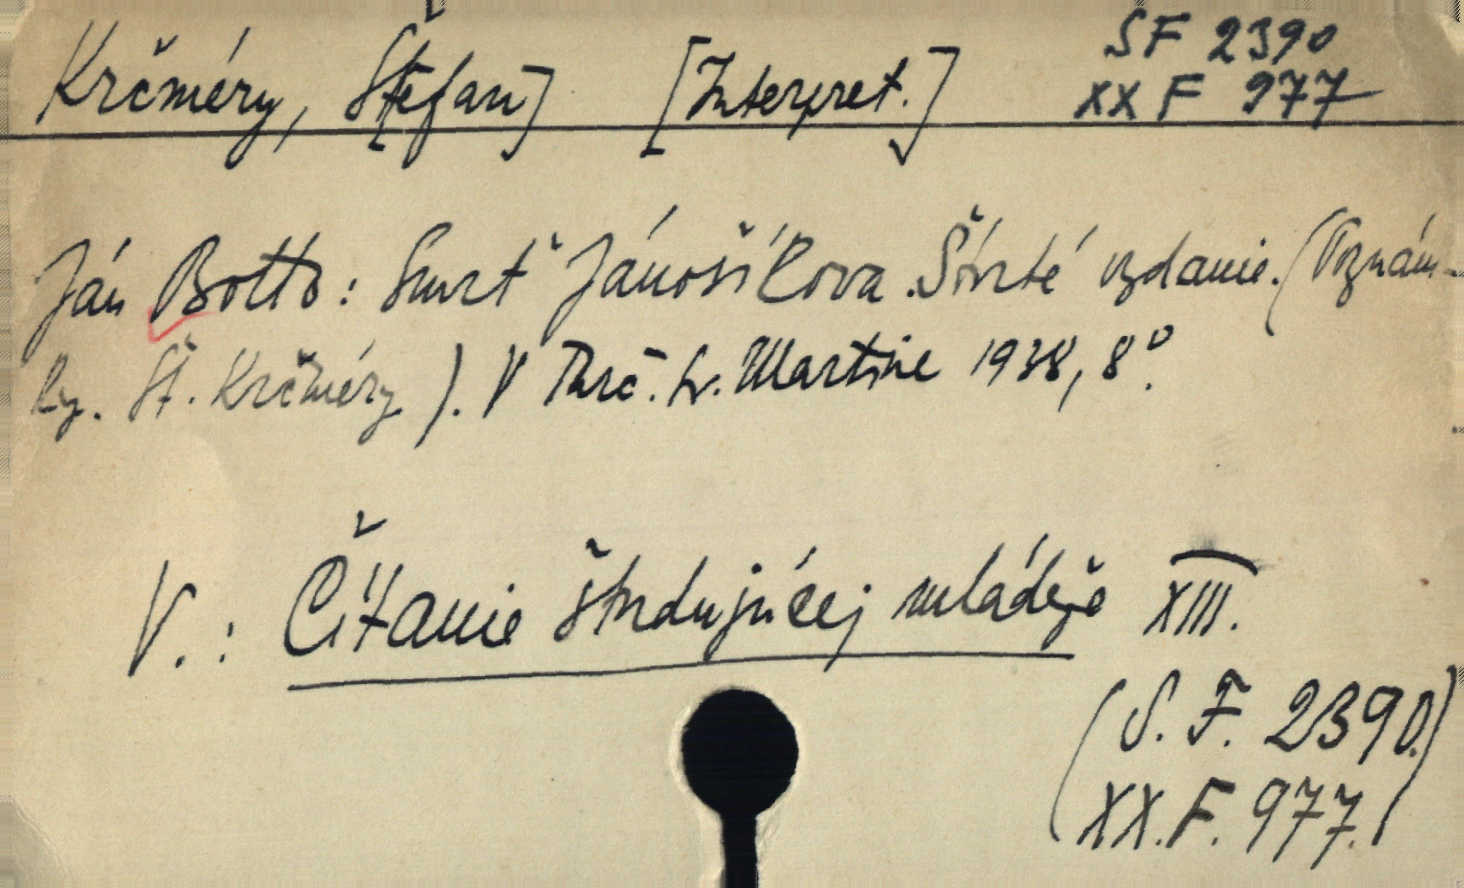 Krčméry, Št[efan] [Interpret.] SF 2390
XX F 977
Ján Botto: Smrť Jánošíkova. Štvrté vydanie. (Poznám-
ky. Št. Krčméry). V Turč. Sv. Martine 1938, 8°.
V.: Čítanie študujúcej mládeže XIII.
(S. F. 2390.)
(XX. F. 977.)